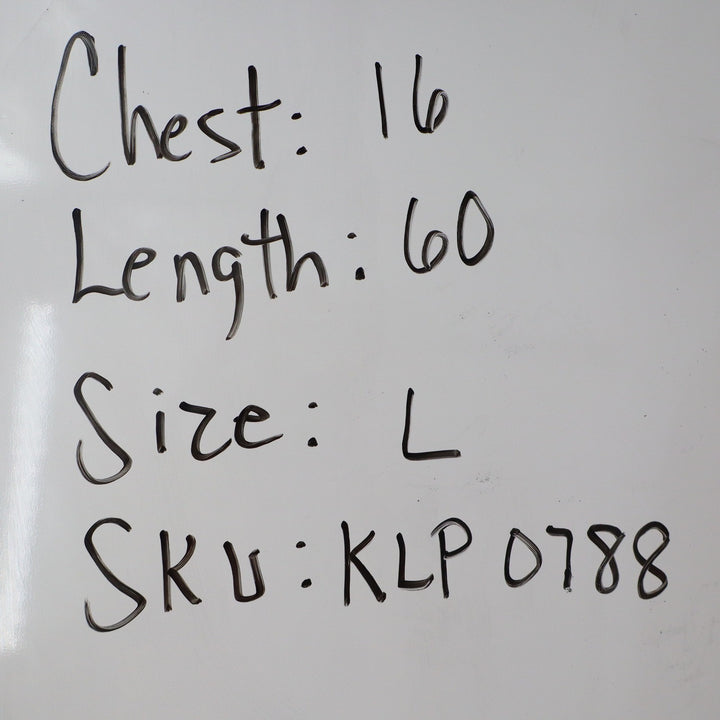 Chest: 16
Length: 60
Size: L
SKU: KLP0788